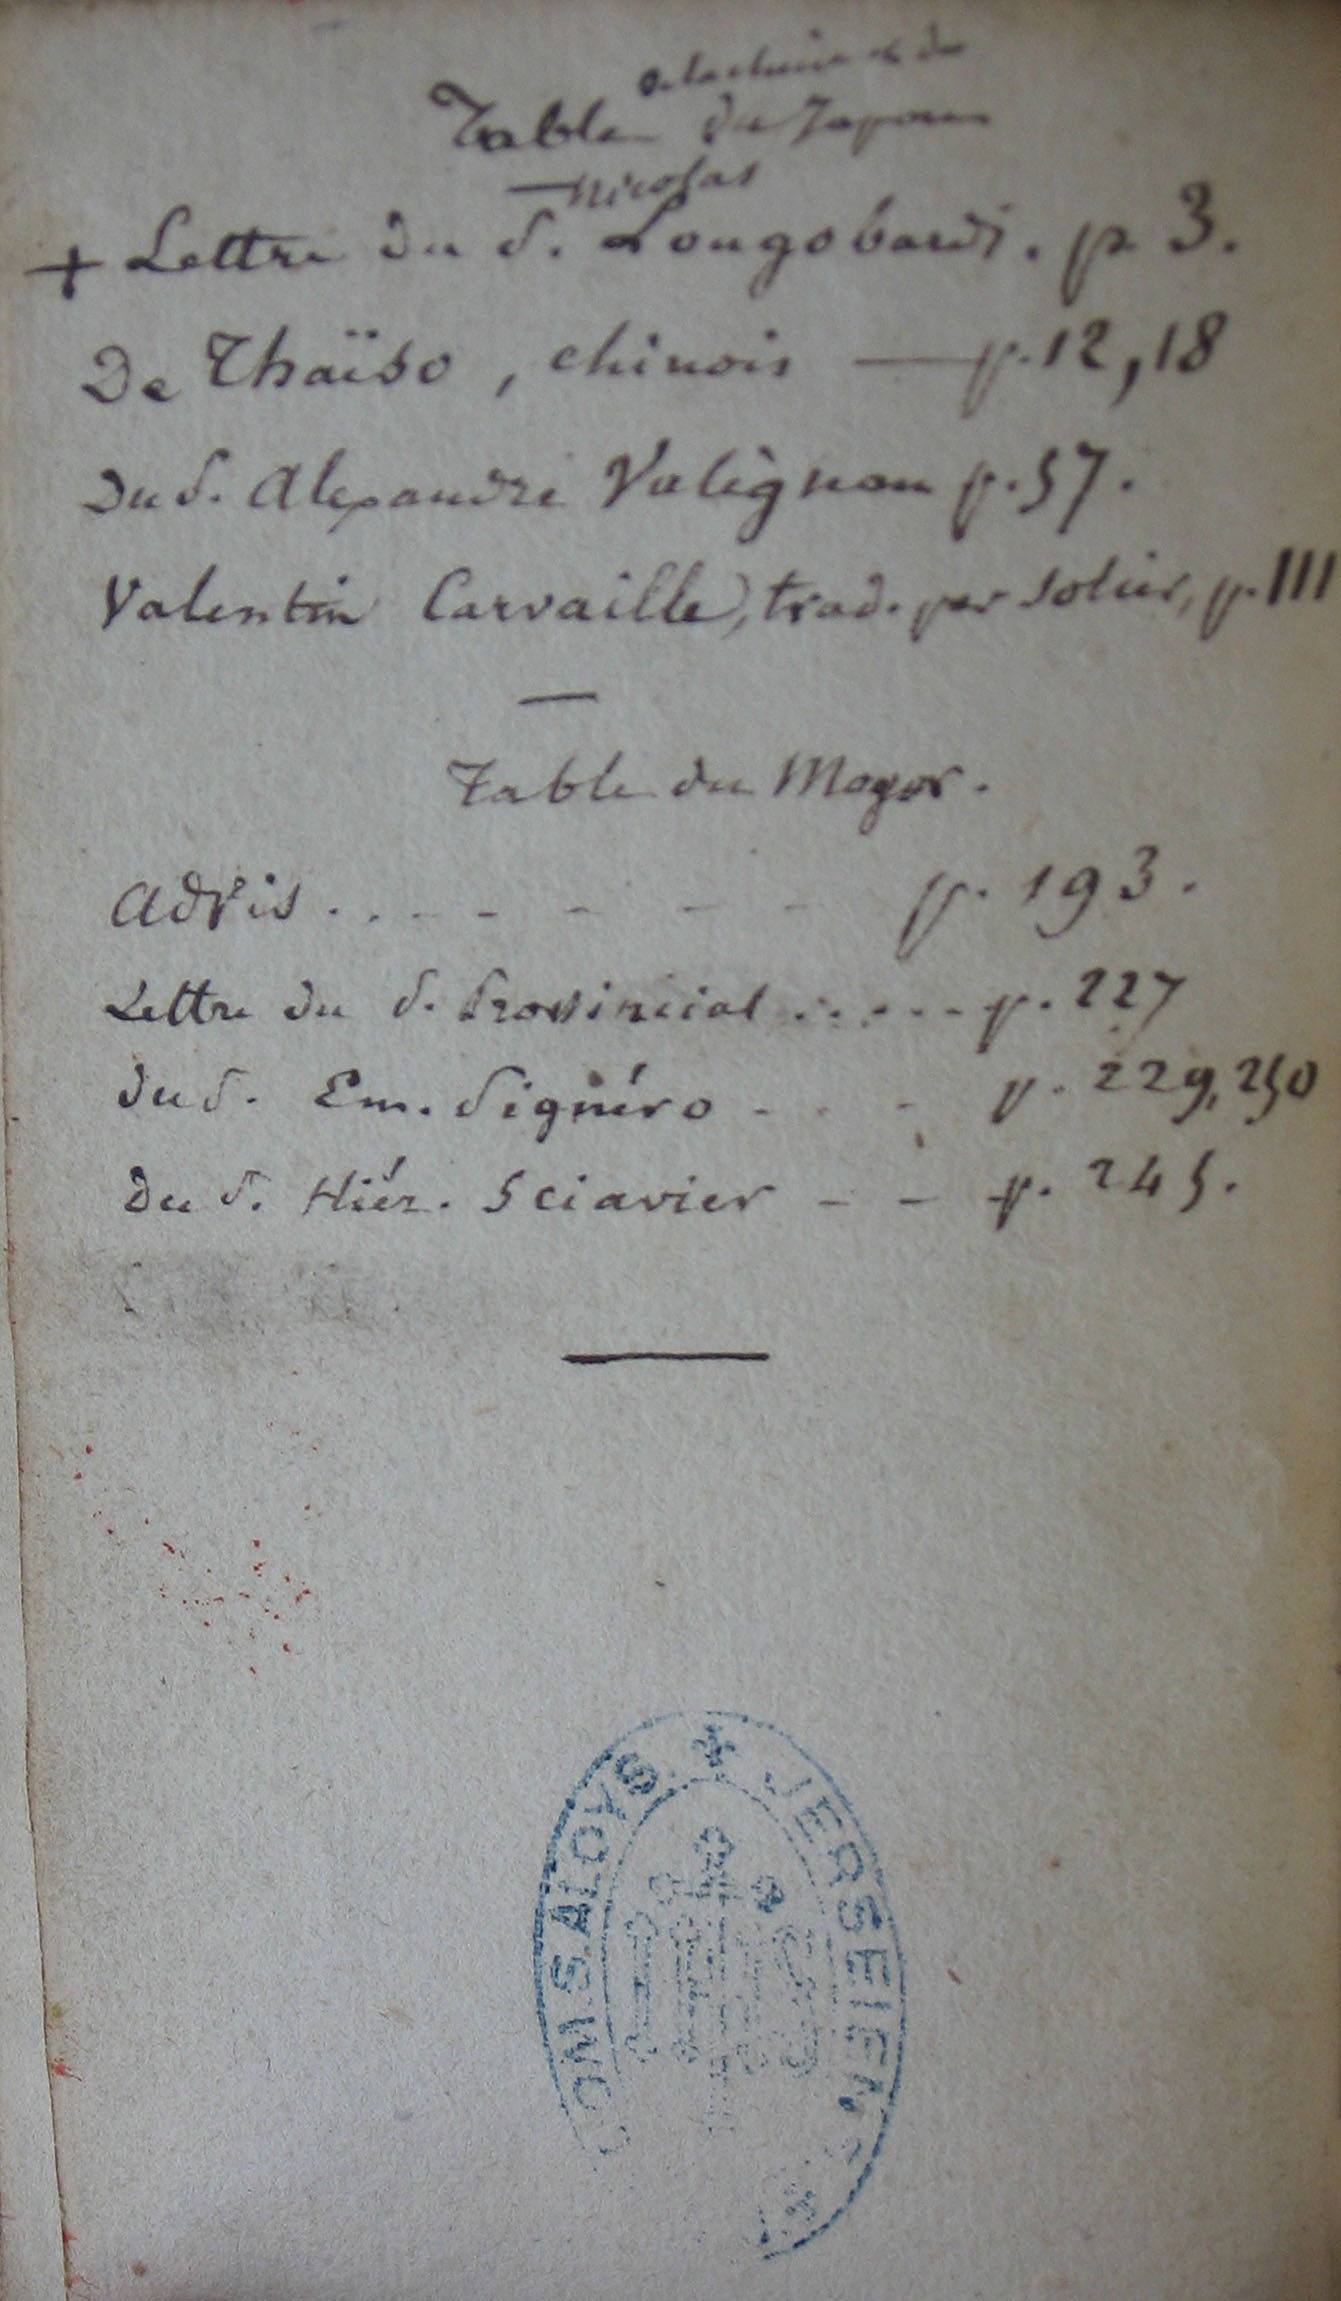 de la chine & du
Table du Japon
Nicolas
+ Lettre du P. Longobardi. p. 3.
De Thaïso, chinois — p. 12, 18
Du P. Alexandre Valignan p. 57.
Valentin Carvaille, trad. par Solier, p. 111
—
Table du Mogor.
Advis . . . - - - - p. 193.
Lettre du P. Provincial . . . . - - p. 227
du P. Em. Pignéro - . - p. 229, 250
Du P. Hiér. Sciavier - - p. 245.
DOM. S. ALOYS JERSEIEN